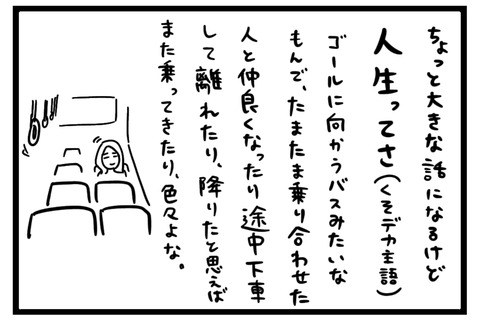 ちょっと大きな話になるけど
人生ってさ(くそデカ主語)
ゴールに向かうバスみたいな
もんで、たまたま乗り合わせた
人と仲良くなったり途中下車
して離れたり、降りたと思えば
また乗ってきたり、色々よな。